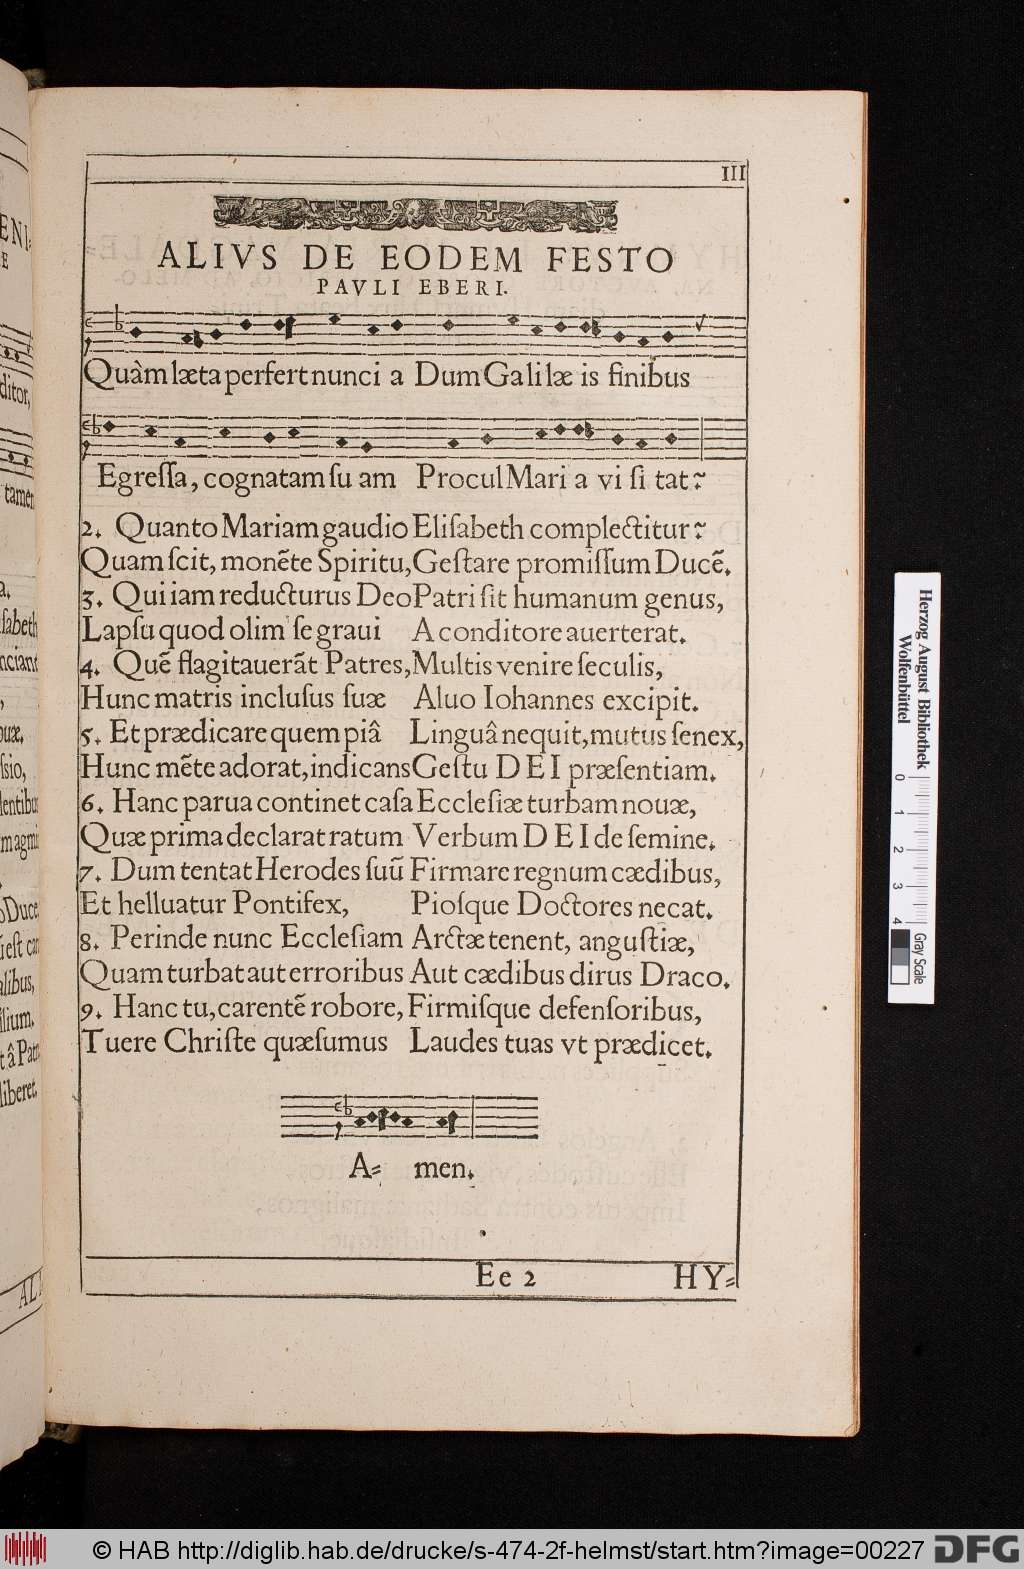 III
ALIVS DE EODEM FESTO
PAVLI EBERI.
Quàm læta perfert nunci a Dum Galilæ is finibus
Egreſſa, cognatam ſu am Procul Mari a vi ſi tat?
2. Quanto Mariam gaudio Eliſabeth complectitur?
Quam ſcit, monẽte Spiritu, Geſtare promiſſum Ducẽ.
3. Qui iam reducturus Deo Patri ſit humanum genus,
Lapſu quod olim ſe graui A conditore auerterat.
4. Quẽ flagitauerãt Patres, Multis venire ſeculis,
Hunc matris incluſus ſuæ Aluo Iohannes excipit.
5. Et prædicare quem piâ Linguâ nequit, mutus ſenex,
Hunc mẽte adorat, indicans Geſtu DEI præſentiam.
6. Hanc parua continet caſa Eccleſiæ turbam nouæ,
Quæ prima declarat ratum Verbum DEI de ſemine.
7. Dum tentat Herodes ſuũ Firmare regnum cædibus,
Et helluatur Pontifex, Pioſque Doctores necat.
8. Perinde nunc Eccleſiam Arctæ tenent, anguſtiæ,
Quam turbat aut erroribus Aut cædibus dirus Draco.
9. Hanc tu, carentẽ robore, Firmiſque defenſoribus,
Tuere Chriſte quæſumus Laudes tuas vt prædicet.
A= men.
Ee 2 HY=
Herzog August Bibliothek
Wolfenbüttel
0 1 2 3 4 Gray Scale
© HAB http://diglib.hab.de/drucke/s-474-2f-helmst/start.htm?image=00227 DFG